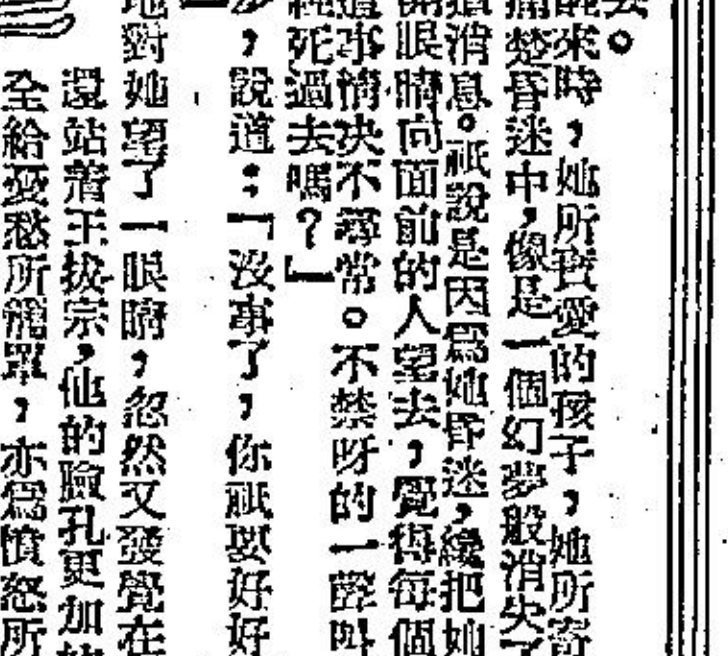 去。
醒來時，她所寶愛的孩子，她所寄
痛楚昏迷中，像是一個幻夢般消失了
消息。祇說是因爲她昏迷，纔把她
開眼睛向面前的人望去，覺得每個
這事情决不尋常。不禁呀的一聲叫
死過去嗎？」
，說道：「沒事了，你祇要好好
地對她望了一眼睛，忽然又發覺在
還站着王拔宗，他的臉孔更加
全給憂愁所籠罩，亦爲憤怒所